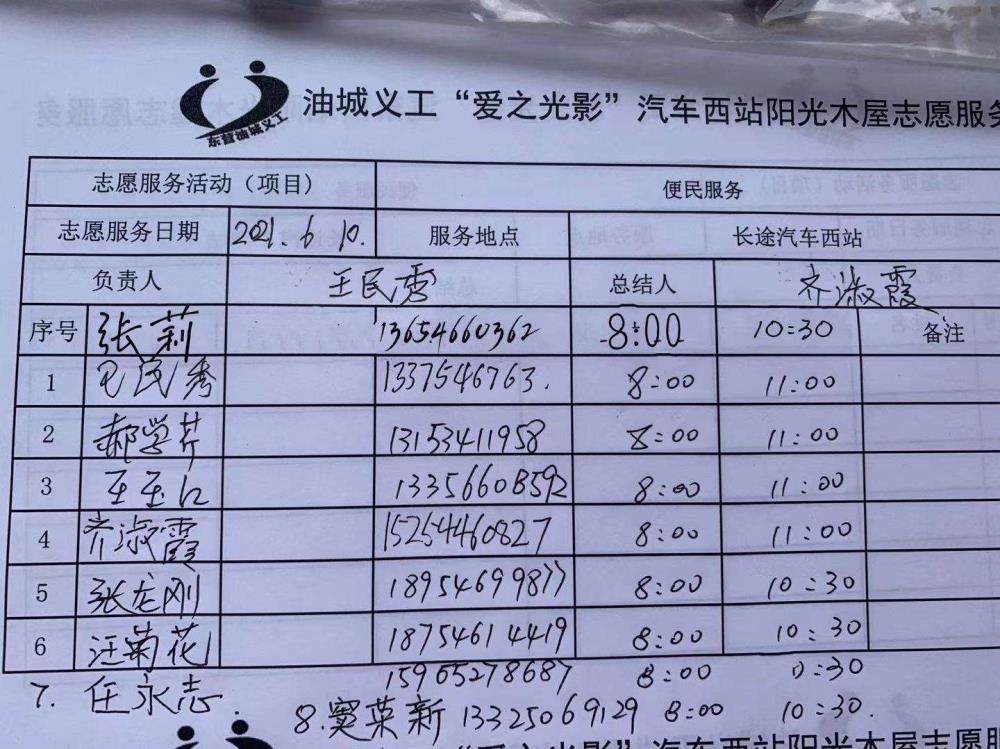 油城义工“爱之光影”汽车西站阳光木屋志愿服务
东营油城义工
志愿服务活动（项目） 便民服务
志愿服务日期 2021.6.10. 服务地点 长途汽车西站
负责人 王民秀 总结人 齐淑霞
序号 张莉 13654660362 8:00 10:30 备注
1 王民秀 1337546763. 8:00 11:00
2 郝学芹 13153411958 8:00 11:00
3 13356608592 8:00 11:00
4 齐淑霞 15254460827 8:00 11:00
5 张龙刚 18954699877 8:00 10:30
6 汪菊花 18754614419 8:00 10:30
7. 任永志. 15965278687 8:00 0:30
8.窦菜新 13325069129 8:00 10:30.
“爱之光影”汽车西站阳光木屋志愿服